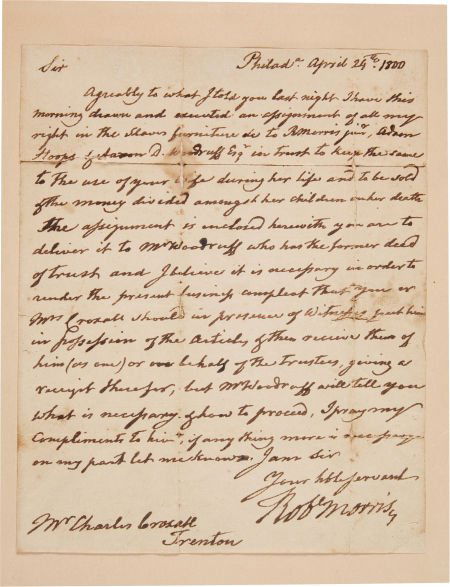 Philada. April 24th. 1800
Sir
Agreably to what I told you last night I have this
morning drawn and executed an assignment of all my
right in the Slaves furniture &c to R Morris junr, Adam
Hoops & Aaron D. Woodruff Esqr in trust to keep the same
to the use of your wife during her life and to be sold
& the money divided amongst her children on her death
The assignment is enclosed herewith you are to
deliver it to Mr Woodruff who has the former deed
of trust and I believe it is necessary in order to
render the present business compleat that you or
Mrs Croxall should in presence of Witnesses put him
in possession of the Articles & then receive them of
him (as one) or on behalf of the trustees, giving a
receipt therefor, but Mr Woodruff will tell you
what is necessary & how to proceed, I pray my
Compliments to him, if any thing more is necessary
on my part let me know. I am Sir
Your hble servant
Robt Morris
Mr Charles Croxall
Trenton